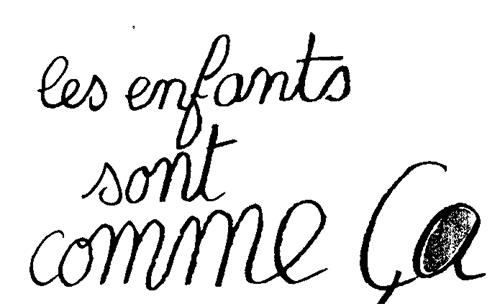 les enfants
sont
comme Ça